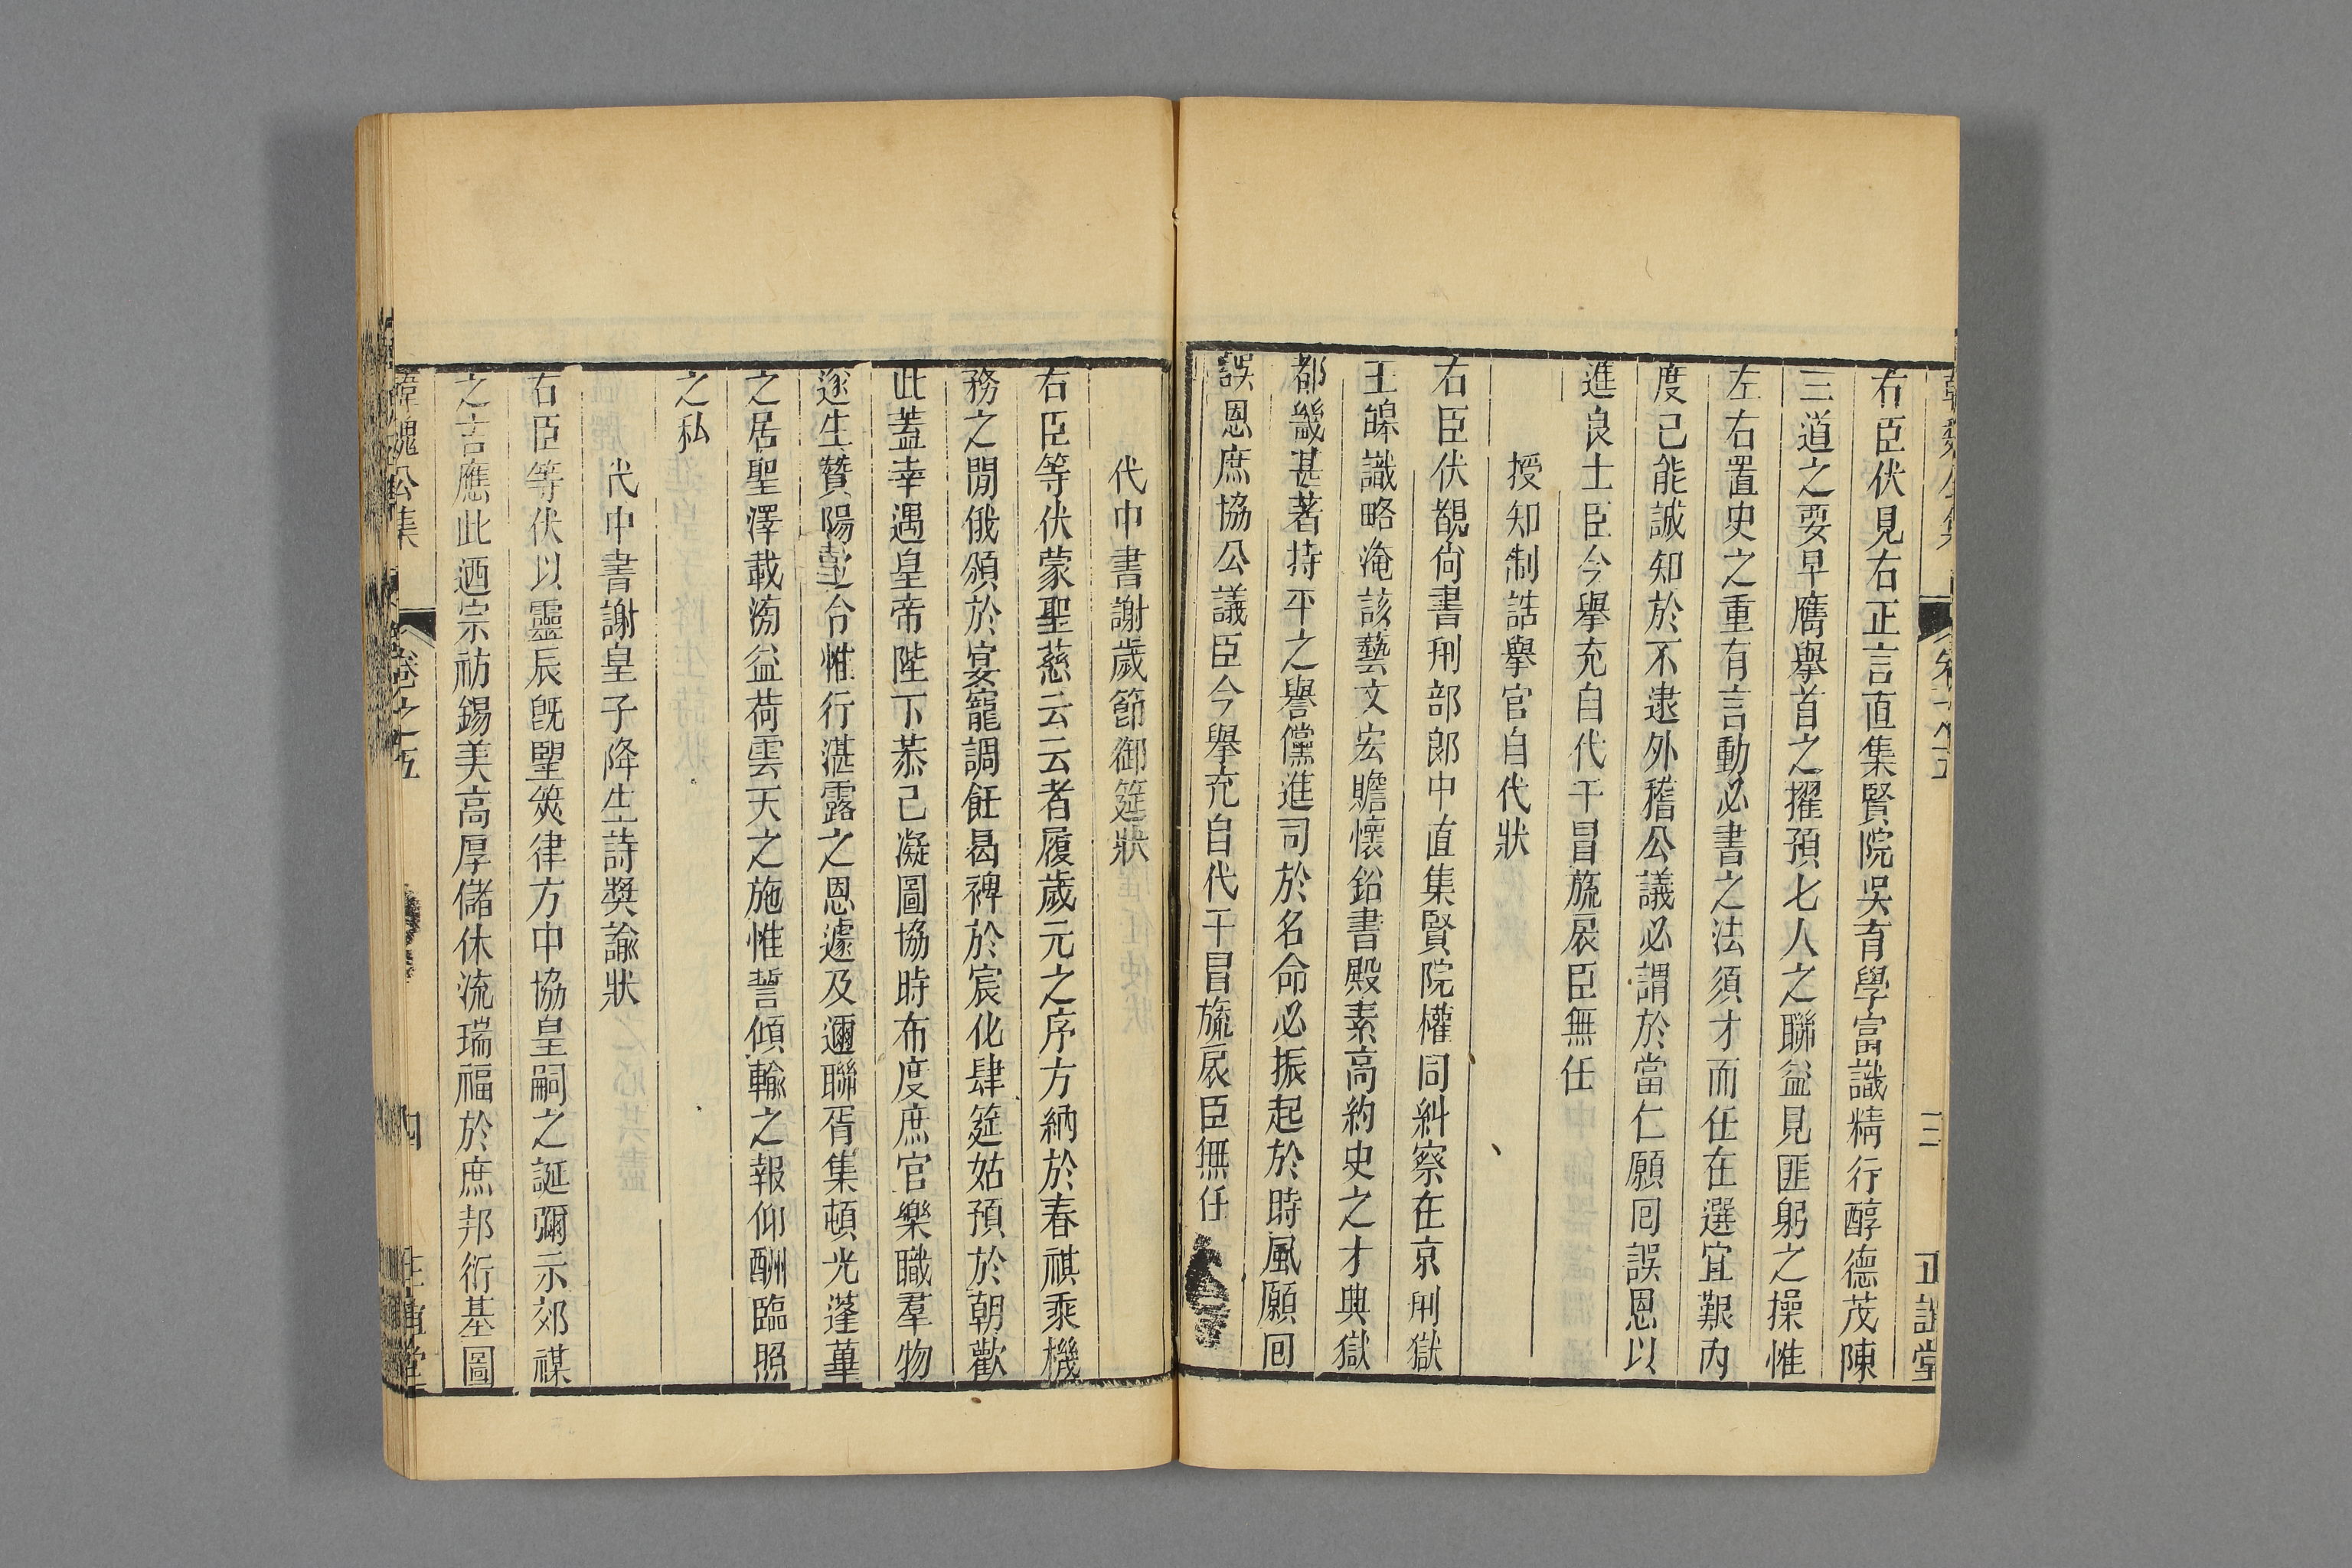 右臣伏見右正言直集賢院吳育學富識精行醇德茂陳
三道之要早膺舉首之擢預七人之聯益見匪躬之操惟
左右置史之重有言動必書之法須才而任在選宜艱內
度己能誠知於不逮外稽公議必謂於當仁願囘誤恩以
進良士臣今舉充自代干冒旒扆臣無任
授知制誥舉官自代狀
右臣伏覩尚書刑部郎中直集賢院權同糾察在京刑獄
王皥識略淹該藝文宏贍懷鉛書殿素高約史之才典獄
都畿甚著持平之譽儻進司於名命必振起於時風願囘
誤恩庶協公議臣今舉充自代干冒旒扆臣無任
三
正誼堂
代中書謝歲節御筵狀
右臣等伏蒙聖慈云云者履歲元之序方納於春祺乘機
務之閒俄頒於宴寵調飪曷裨於宸化肆筵姑預於朝歡
此蓋幸遇皇帝陛下恭己凝圖協時布度庶官樂職羣物
遂生贊陽臺之令惟行湛露之恩遽及邇聯胥集頓光蓬蓽
之居聖澤載湯益荷雲天之施惟誓傾輸之報仰酬臨照
之私
代中書謝皇子降生詩獎諭狀
右臣等伏以靈辰旣盥筴律方中協皇嗣之誕彌示郊禖
之言應此迺宗祊錫美高厚儲休流瑞福於庶邦衍基圖
韓魏公集
卷之五
四